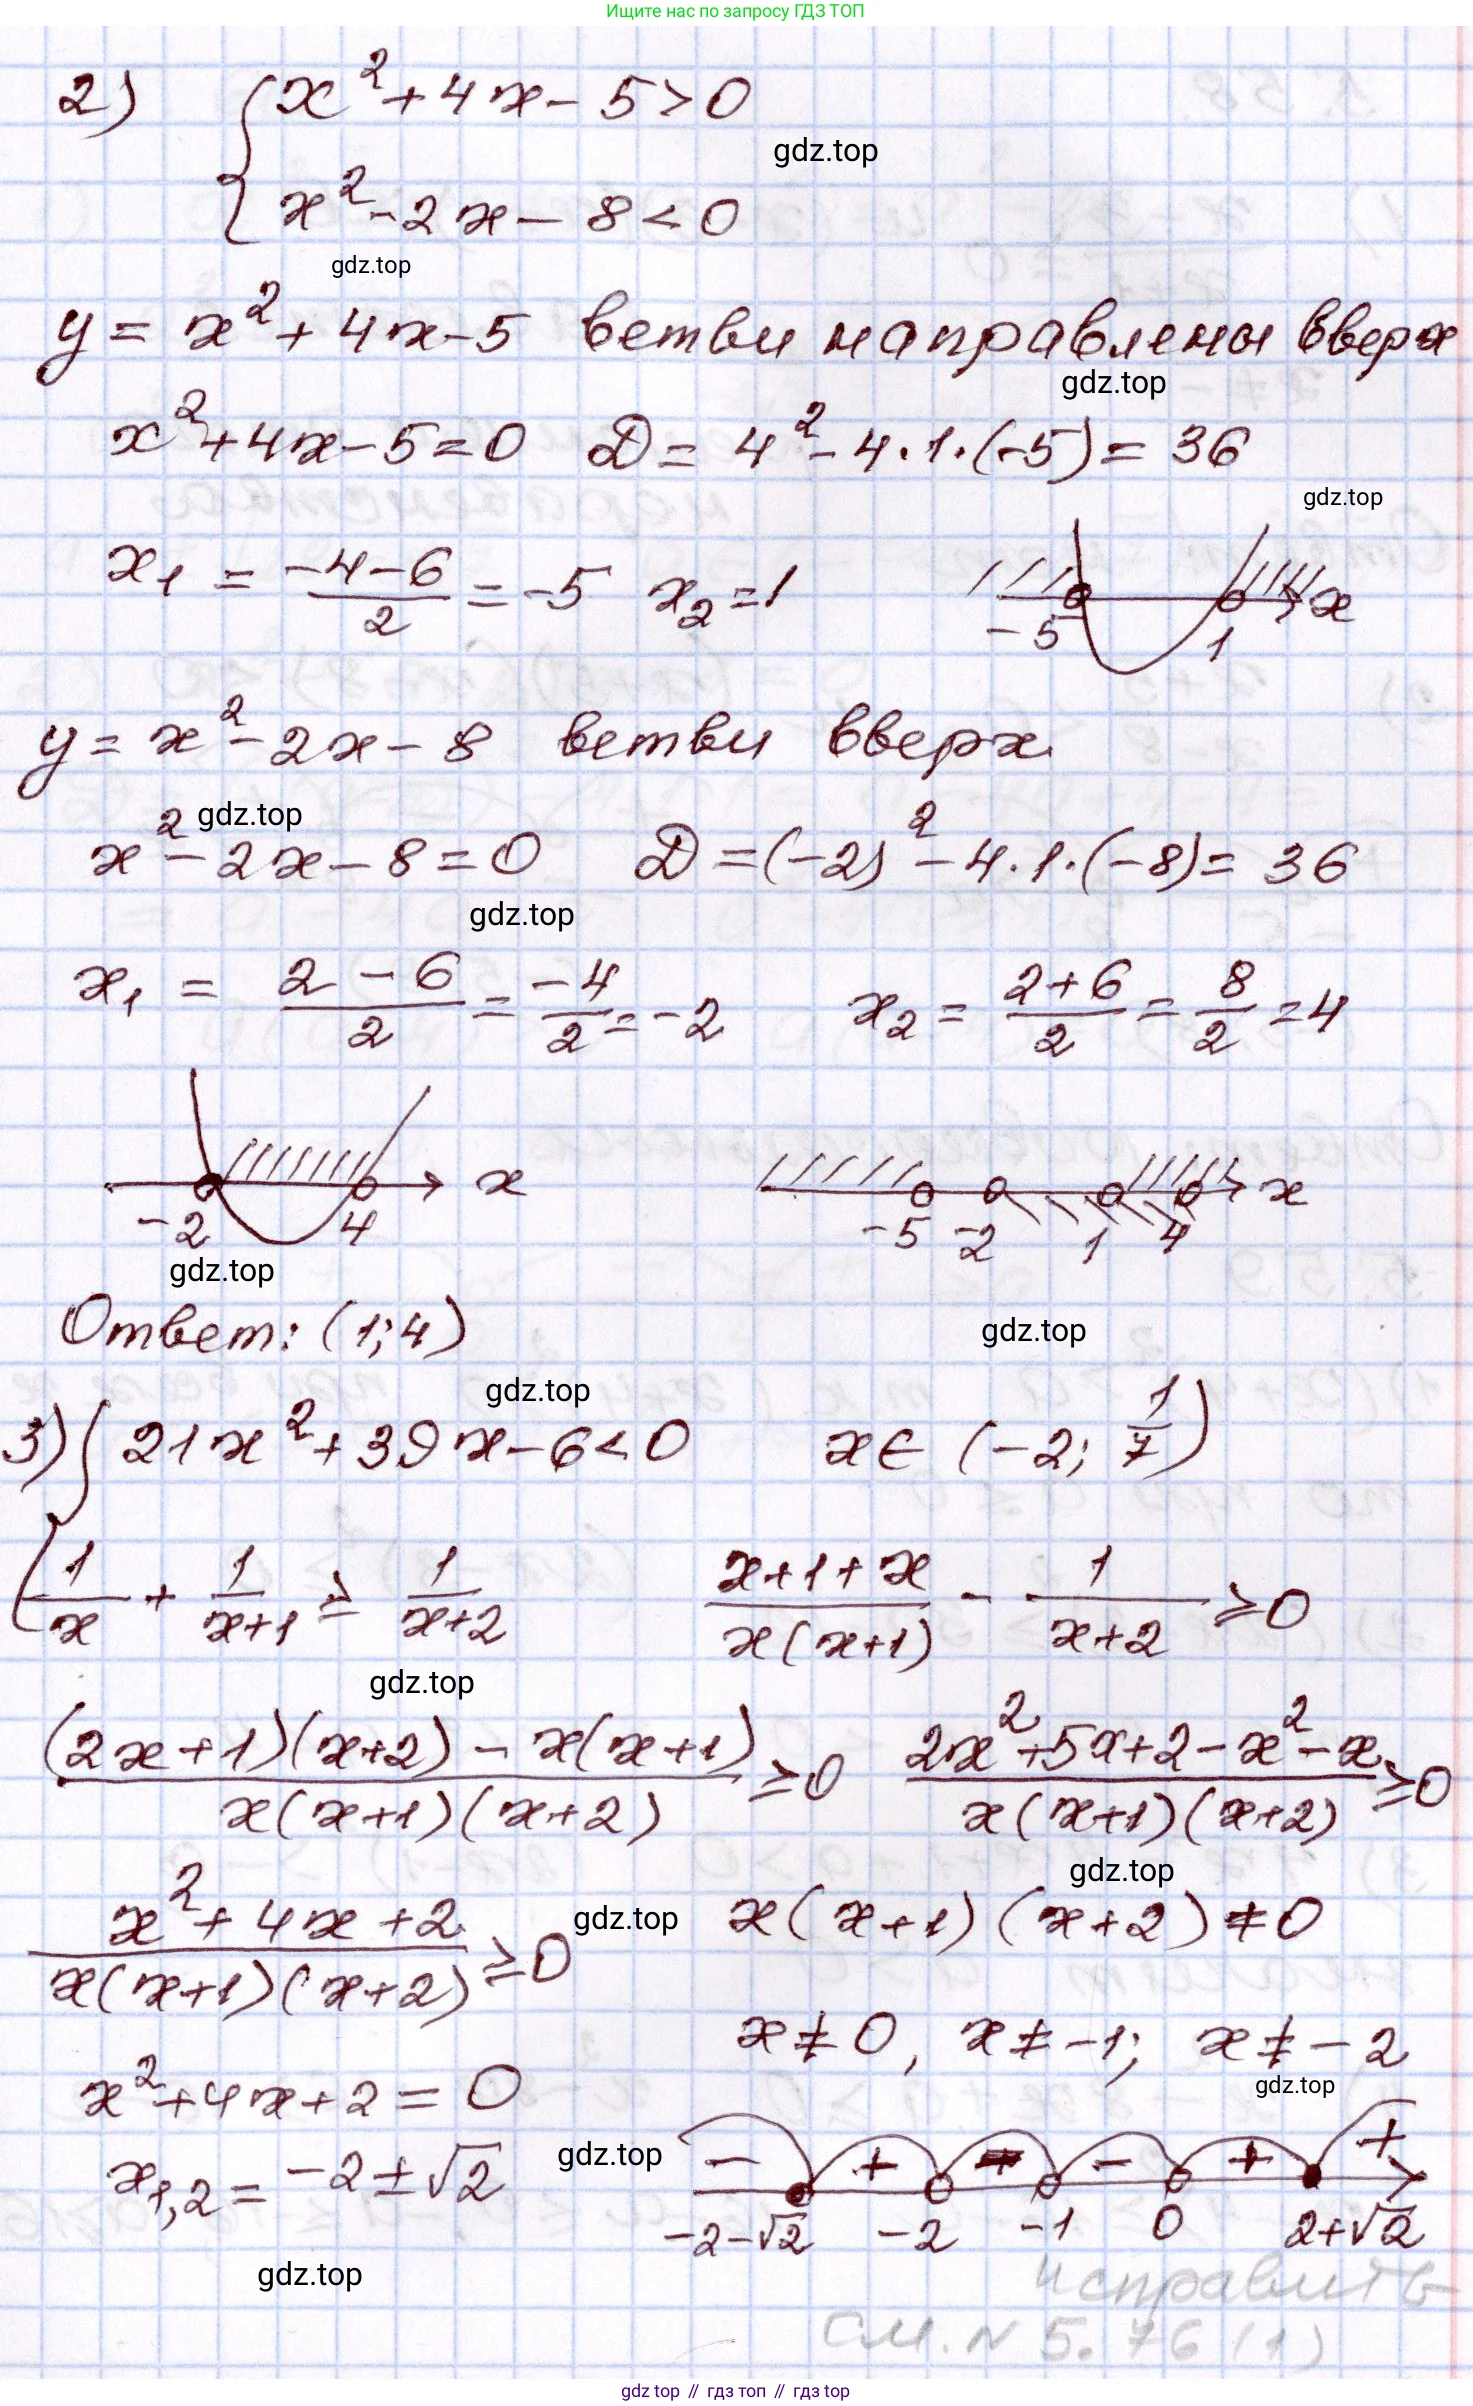 Ищите нас по запросу ГДЗ ТОП
2) { x² + 4x - 5 > 0
gdz.top
x² - 2x - 8 < 0
gdz.top
y = x² + 4x - 5 ветви направлены вверх
gdz.top
x² + 4x - 5 = 0 D = 4² - 4·1·(-5) = 36
gdz.top
x₁ = (-4-6)/2 = -5 x₂ = 1
x
-5 1
y = x² - 2x - 8 ветви вверх
gdz.top
x² - 2x - 8 = 0 D = (-2)² - 4·1·(-8) = 36
gdz.top
x₁ = (2-6)/2 = -4/2 = -2 x₂ = (2+6)/2 = 8/2 = 4
x x
-2 4 -5 -2 1 4
gdz.top
Ответ: (1;4)
gdz.top
gdz.top
3) { 21x² + 39x - 6 < 0 x ∈ (-2; 1/7)
1/x + 1/(x+1) ≥ 1/(x+2) (x+1+x)/(x(x+1)) - 1/(x+2) ≥ 0
gdz.top
((2x+1)(x+2) - x(x+1))/(x(x+1)(x+2)) ≥ 0 (2x²+5x+2-x²-x)/(x(x+1)(x+2)) ≥ 0
gdz.top
(x²+4x+2)/(x(x+1)(x+2)) ≥ 0 gdz.top x(x+1)(x+2) ≠ 0
x ≠ 0, x ≠ -1; x ≠ -2
gdz.top
x² + 4x + 2 = 0
gdz.top
- + - + +
x₁,₂ = -2 ± √2
-2-√2 -2 -1 0 2+√2
gdz.top
исправить
см. N 5.76(1)
gdz top // гдз топ // gdz top